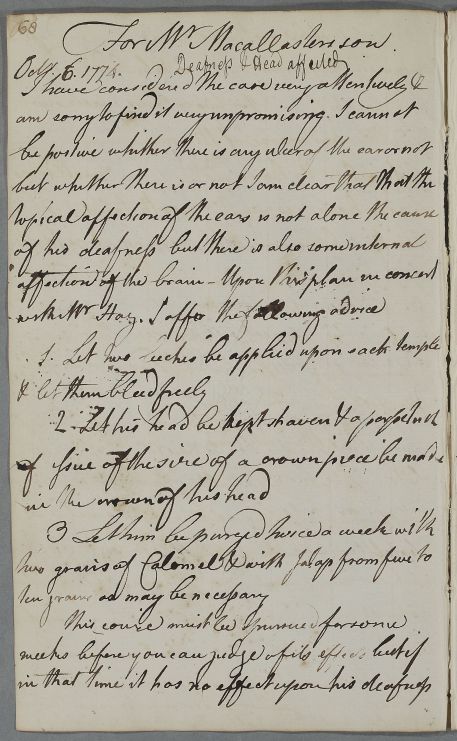 68
For Mr Macallasters son.
Octr. 6. 1774. Deafness & Head affected
I have considered the case very attentively &
am sorry to find it very unpromising. I cannot
be positive whether there is any ulcer of the ear or not
but whether there is or not I am clear that that the
topical affection of the ears is not alone the cause
of his deafness but there is also some internal
affection of the brain - Upon this plan in concert
with Mr Hay. I offer the following advice
1. Let two leeches be applied upon each temple
& let them bleed freely
2. Let his head be kept shaven & a perpetual
issue of the size of a crown piece be made
in the crown of his head
3 Let him be purged twice a week with
two grains of Calomel & with Jalap from five to
ten grains as may be necessary
This course must be pursued for some
weeks before you can judge of its effects but if
in that time it has no effect upon his deafness